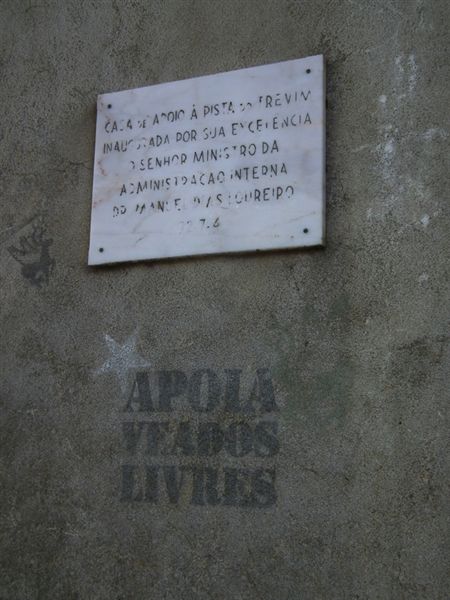 CASA DE APOIO À PISTA DO TREVIM
INAUGURADA POR SUA EXCELÊNCIA
O SENHOR MINISTRO DA
ADMINISTRAÇÃO INTERNA
DR. MANUEL DIAS LOUREIRO
APOIA
VEADOS
LIVRES